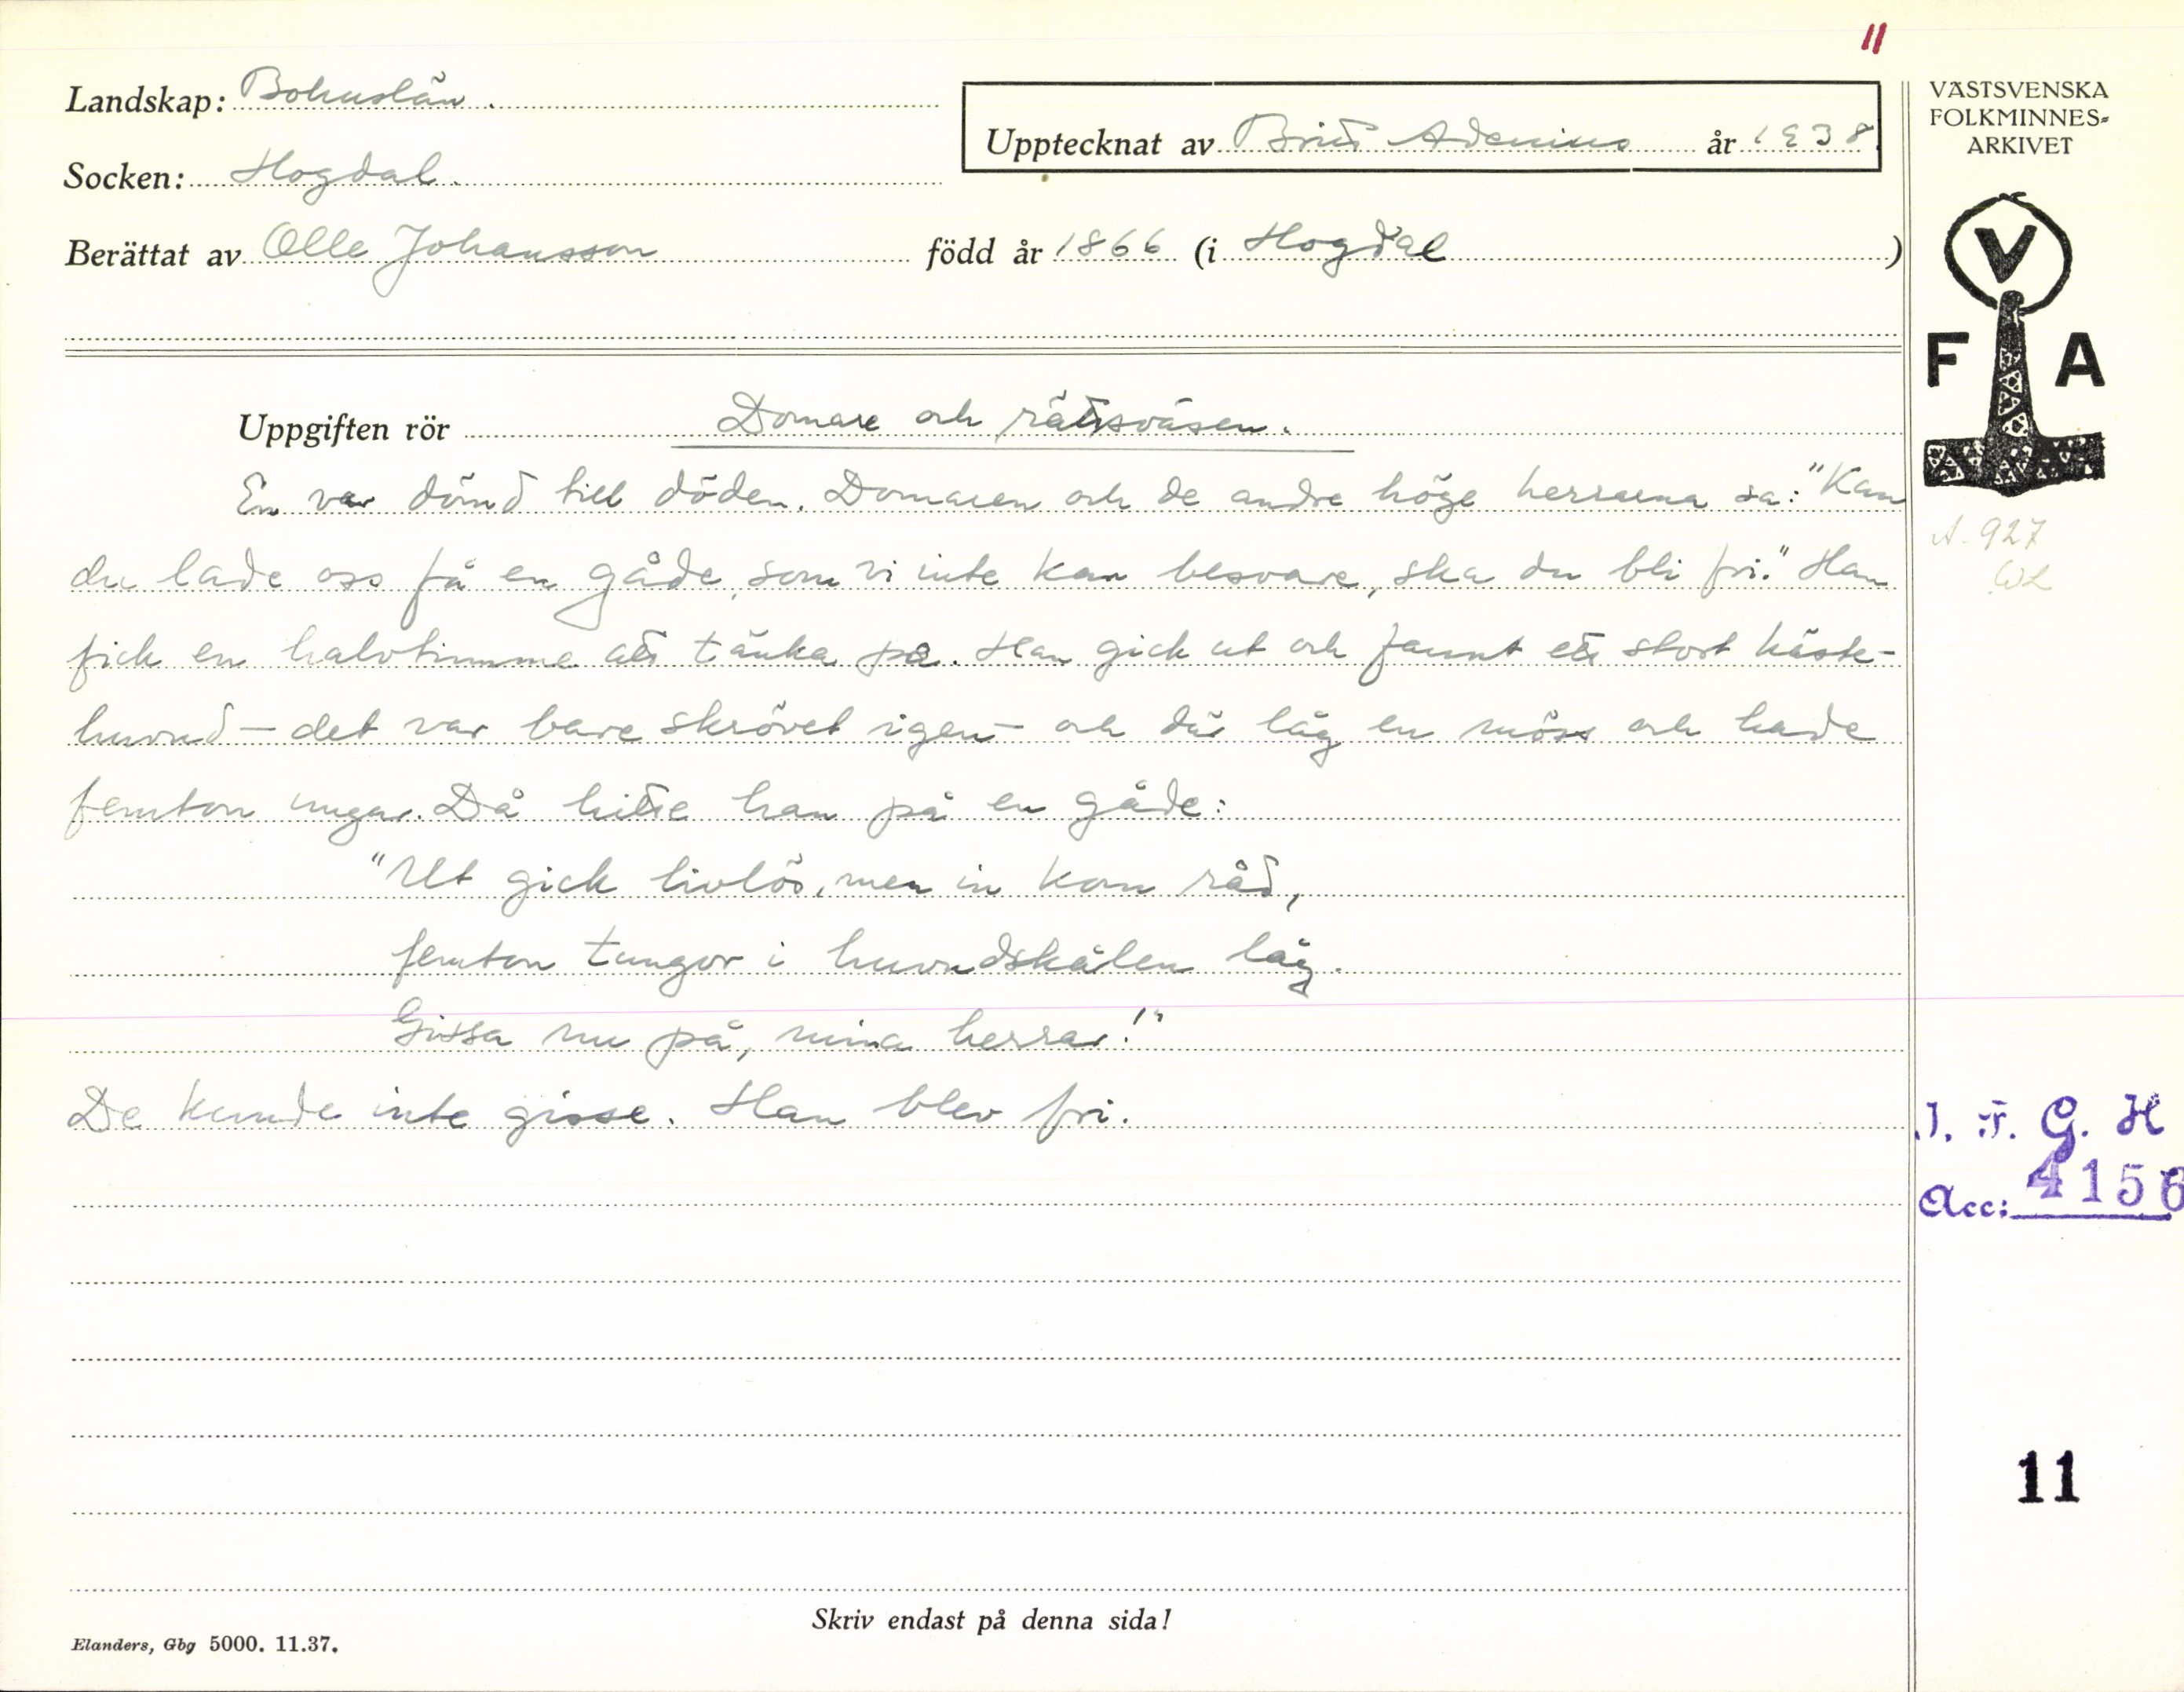 11
Landskap: Bohuslän.
Upptecknat av Britt Adenius år 1938
VÄSTSVENSKA
FOLKMINNES-
ARKIVET
Socken: Hogdal.
Berättat av Olle Johansson född år 1866 (i Hogdal)
V
F A
Uppgiften rör Domare och rättsväsen.
En var dömd till döden. Domaren och de andre höge herrarna sa: "Kan
du lade oss få en gåde, som vi inte kan besvare, ska du bli fri." Han
fick en halvtimme att tänka på. Han gick ut och faunt ett stort häste-
huvud - det var bare skrövet igen - och där låg en möss och hade
femton ungar. Då hitte han på en gåde:
"Ut gick livlös, men in kom råd,
femton tungor i huvudskålen låg.
Gissa nu på, mina herrar!"
De kunde inte gisse. Han blev fri.
A. 927
WL
I. F. G. H
Acc: 4156
11
Skriv endast på denna sida!
Elanders, Gbg 5000. 11.37.